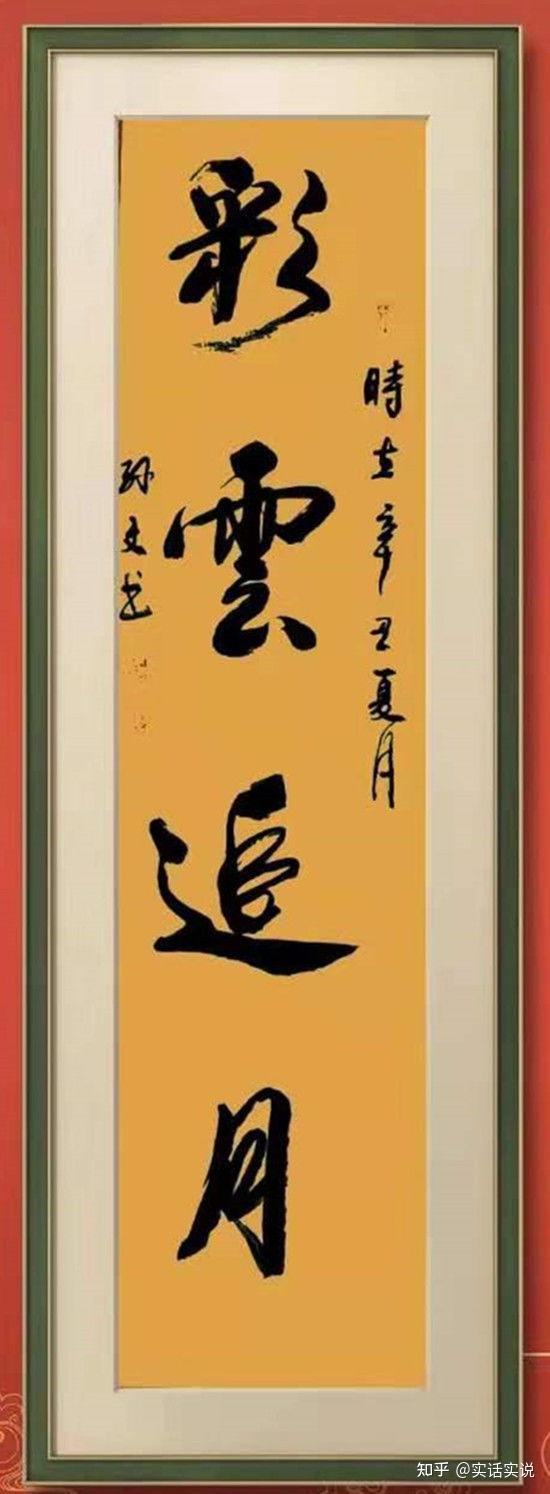 彩雲追月
時在辛丑夏月
孙文书
知乎 @实话实说